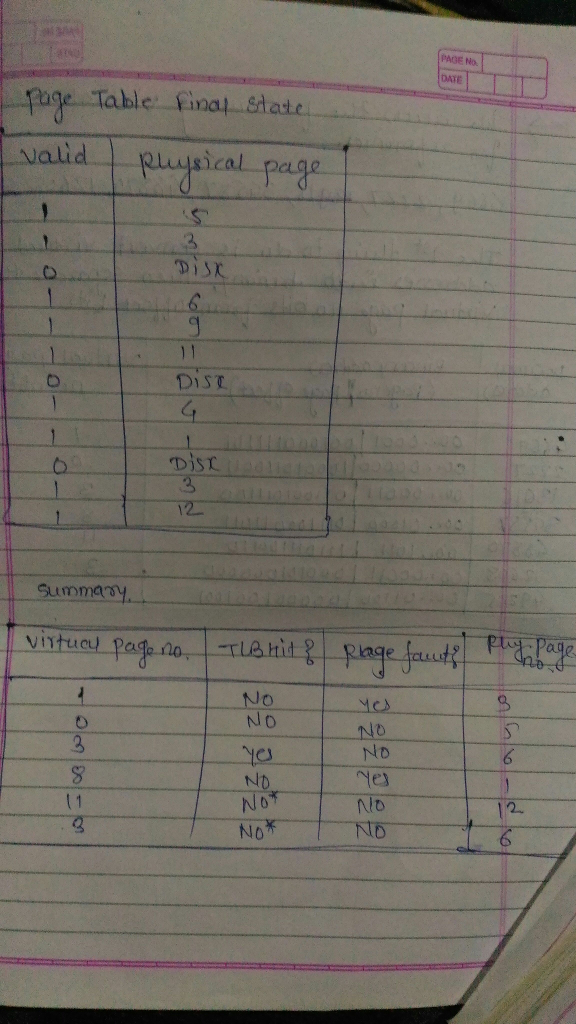 PAGE No.
DATE
Page Table Final State
valid physical page
1 5
1 3
0 Disk
1 6
1 9
1 11
0 Disk
1 4
1 1
0 Disk
1 3
1 12
summary.
virtual page no. TLB Hit? Page fault? Phy. page no.
1 No Yes 3
0 No No 5
3 Yes No 6
8 No Yes 1
11 No* No 12
3 No* No 6